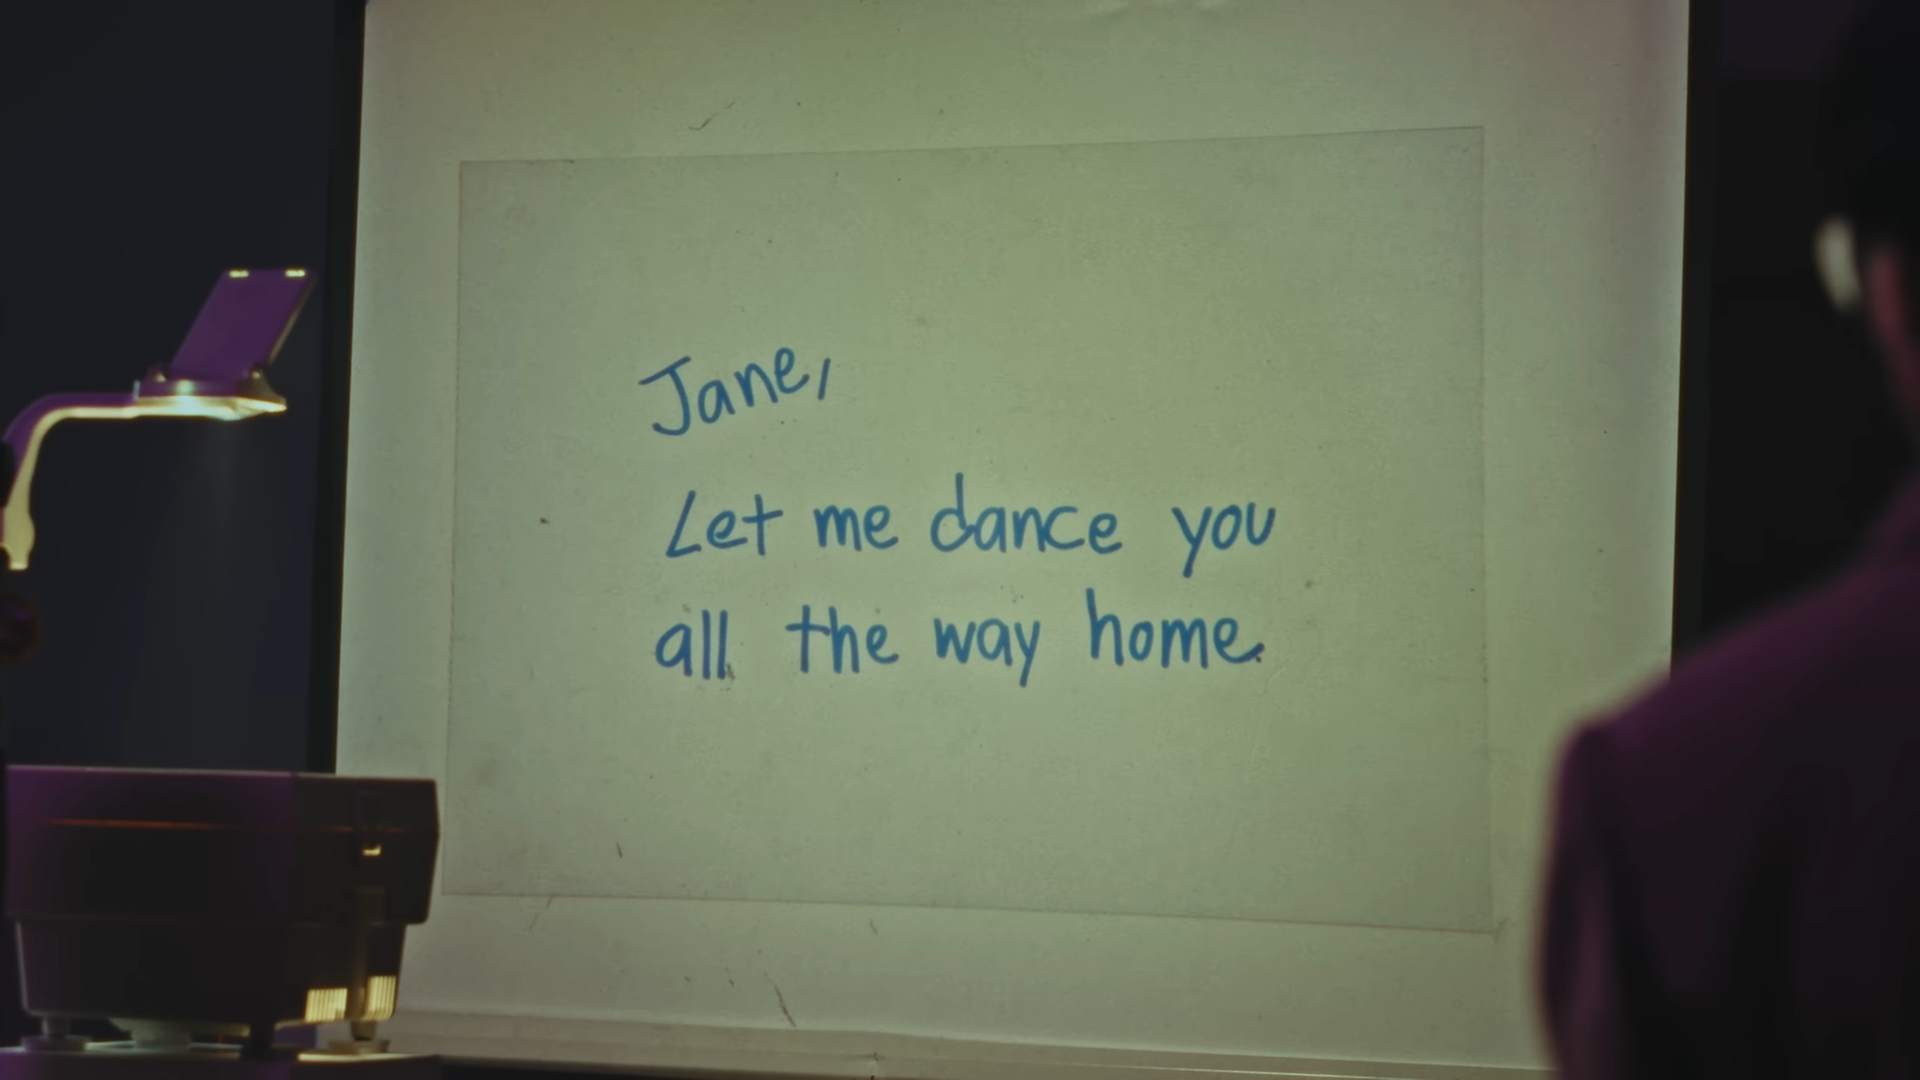 Jane,
Let me dance you
all the way home.